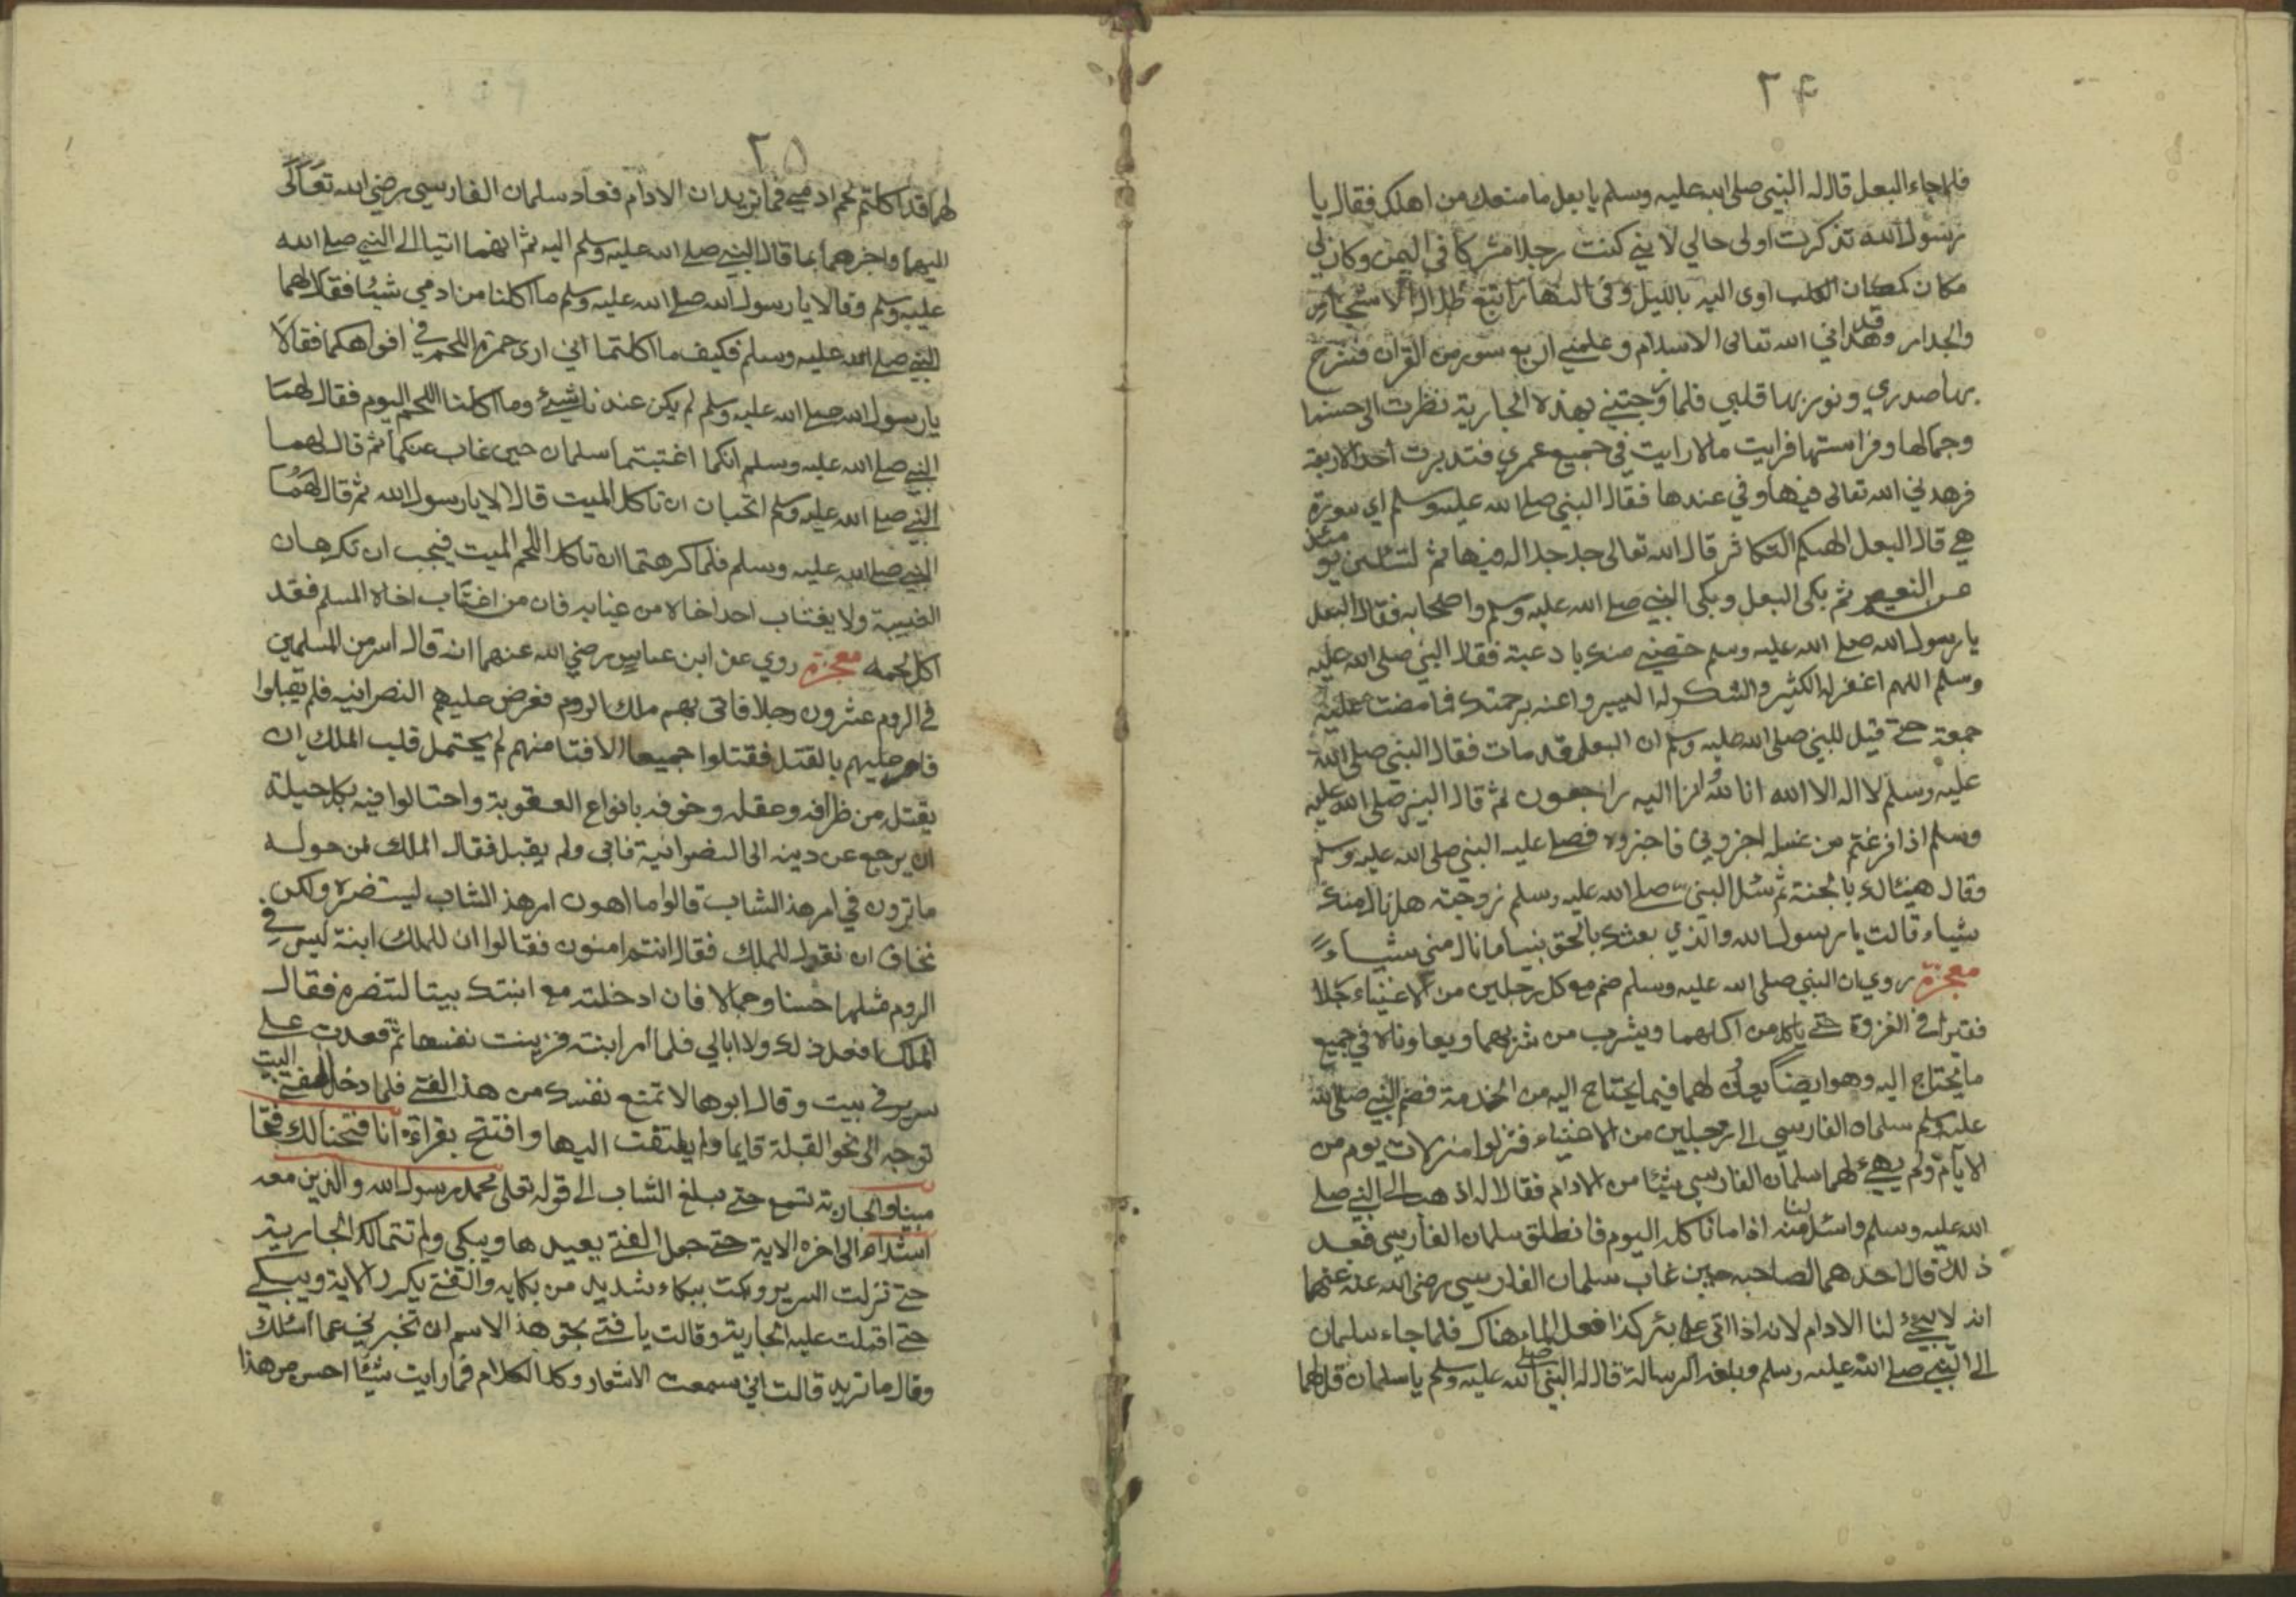 ٢٤
فلما جاء البعل قال له النبي صلى الله عليه وسلم يا بعل ما منعك من اهلك فقال يا
رسول الله تذكرت اولى حالي لاني كنت رجلا مشركا في اليمن وكان لي
مكان كمكان الكلب اوى اليه بالليل وفي النهار اتبع ظلال الاشجار
والجدار وقد هداني الله تعالى الاسلام وعلمني اربع سور من القران فشرح
بها صدري ونور بها قلبي فلما زوجتني بهذه الجارية نظرت الى حسنها
وجمالها وفراستها فرايت مالا رايت في جميع عمري فتدبرت احد الاربعة
فزهدني الله تعالى فيها وفي عندها فقال النبي صلى الله عليه وسلم اي سورة
هي قال البعل الهيكم التكاثر قال الله تعالى جل جلاله فيها ثم لتسئلن يومئذ
عن النعيم ثم بكى البعل وبكى النبي صلى الله عليه وسلم واصحابه فقال البعل
يا رسول الله صلى الله عليه وسلم خصني منك با دعية فقال النبي صلى الله عليه
وسلم اللهم اغفر له الكثير والشكر له اليسير واعنه برحمتك فما مضت عليه
جمعة حتى قيل للنبي صلى الله عليه وسلم ان البعل قد مات فقال النبي صلى الله
عليه وسلم لا اله الا الله انا لله انا اليه راجعون ثم قال النبي صلى الله عليه
وسلم اذا فرغتم من غسله اخبروني فاخبروه فصلى عليه النبي صلى الله عليه وسلم
وقال هنيئا لك بالجنة ثم سئل النبي صلى الله عليه وسلم زوجته هل نال منك
شياء قالت يا رسول الله والذي بعثك بالحق نبيا ما نال مني شياءً
معجزة روي ان النبي صلى الله عليه وسلم ضم مع كل رجلين من الاغنياء رجلا
فقيرا في الغزوة حتى ياكل من اكلهما ويشرب من شربهما ويعاوناه في جميع
ما يحتاج اليه وهو ايضا يعاون لهما فيما يحتاج اليه من الخدمة فضم النبي صلى الله
عليه وسلم سلمان الفارسي الى رجلين من الاغنياء فنزلوا منزلات يوم من
الايام ولم يهيئ لهما سلمان الفارسي شيئا من الادام فقالا له اذهب الى النبي صلى
الله عليه وسلم واسئل لنا منه اداما ناكله اليوم فانطلق سلمان الفارسي فعند
ذلك قال احدهما لصاحبه حين غاب سلمان الفارسي رضي الله عنه عنهما
انه لا يجئ لنا الادام لانه اذا اتى على بئر كذا فعل الماء هناك فلما جاء سلمان
الى النبي صلى الله عليه وسلم وبلغه الرسالة قال له النبي صلى الله عليه وسلم يا سلمان قل لهما
٢٥
لهما قد اكلتم لحم ادمي فما تريدان الادام فعاد سلمان الفارسي رضي الله تعالى
اليهما واخبرهما بما قال النبي صلى الله عليه وسلم اليه ثم انهما اتيا الى النبي صلى الله
عليه وسلم وقالا يا رسول الله صلى الله عليه وسلم ما اكلنا من ادمي شيئا فقال لهما
النبي صلى الله عليه وسلم فكيف ما اكلتما اني ارى حمرة اللحم في افواهكما فقالا
يا رسول الله صلى الله عليه وسلم لم يكن عندنا شيئ وما اكلنا اللحم اليوم فقال لهما
النبي صلى الله عليه وسلم انكما اغتبتما سلمان حين غاب عنكما ثم قال لهما
النبي صلى الله عليه وسلم اتحبان ان تاكل الميت قالا لا يا رسول الله ثم قال لهما
النبي صلى الله عليه وسلم فلما كرهتما ان تاكلا اللحم الميت فيجب ان تكرهان
الغيبة ولا يغتاب احدا خاه من غيابه فان من اغتاب اخاه المسلم فقد
اكل لحمه معجزة روي عن ابن عباس رضي الله عنهما انه قال اسر من المسلمين
في الروم عشرون رجلا فاتى بهم ملك الروم فعرض عليهم النصرانيه فلم يقبلوا
فامر عليهم بالقتل فقتلوا جميعا الا فتا منهم لم يحتمل قلب الملك ان
يقتله من ظرافه وعقله وخوفه بانواع العقوبة واحتالوا فيه بكل حيلة
ان يرجع عن دينه الى النصرانية فابى ولم يقبل فقال الملك لمن حوله
ما ترون في امر هذ الشاب قالوا ما اهون امر هذ الشاب ليتنصره ولكن
نخاف ان نقول للملك فقال انتم امنون فقالوا ان للملك ابنة ليس في
الروم مثلها حسنا وجمالا فان ادخلته مع ابنتك بيتا لتنصره فقال
الملك افعل ذلك ولا ابالي فلما امر ابنته فزينت نفسها ثم قعدت على
سرير في بيت وقال ابوها لا تمنع نفسك من هذ الفتى فلما دخل الفتى البيت
توجه الى نحو القبلة قايما ولم يلتفت اليها وافتتح بقراءة انا فتحنا لك فتحا
مبينا والجارية تسمع حتى بلغ الشاب الى قوله تعلى محمد رسول الله والذين معه
اشداء الى اخره الاية حتى جعل الفتى يعيدها ويبكي ولم تتمالك الجارية
حتى نزلت السرير وبكت ببكاء شديد من بكايه والفتى يكرر الاية ويبكي
حتى اقبلت عليه الجارية وقالت يا فتى بحق هذ الاسم ان تخبرني عما اسئلك
وقال ما تريد قالت اني سمعت الاشعار وكل الكلام فما رايت شيئا احسن من هذا